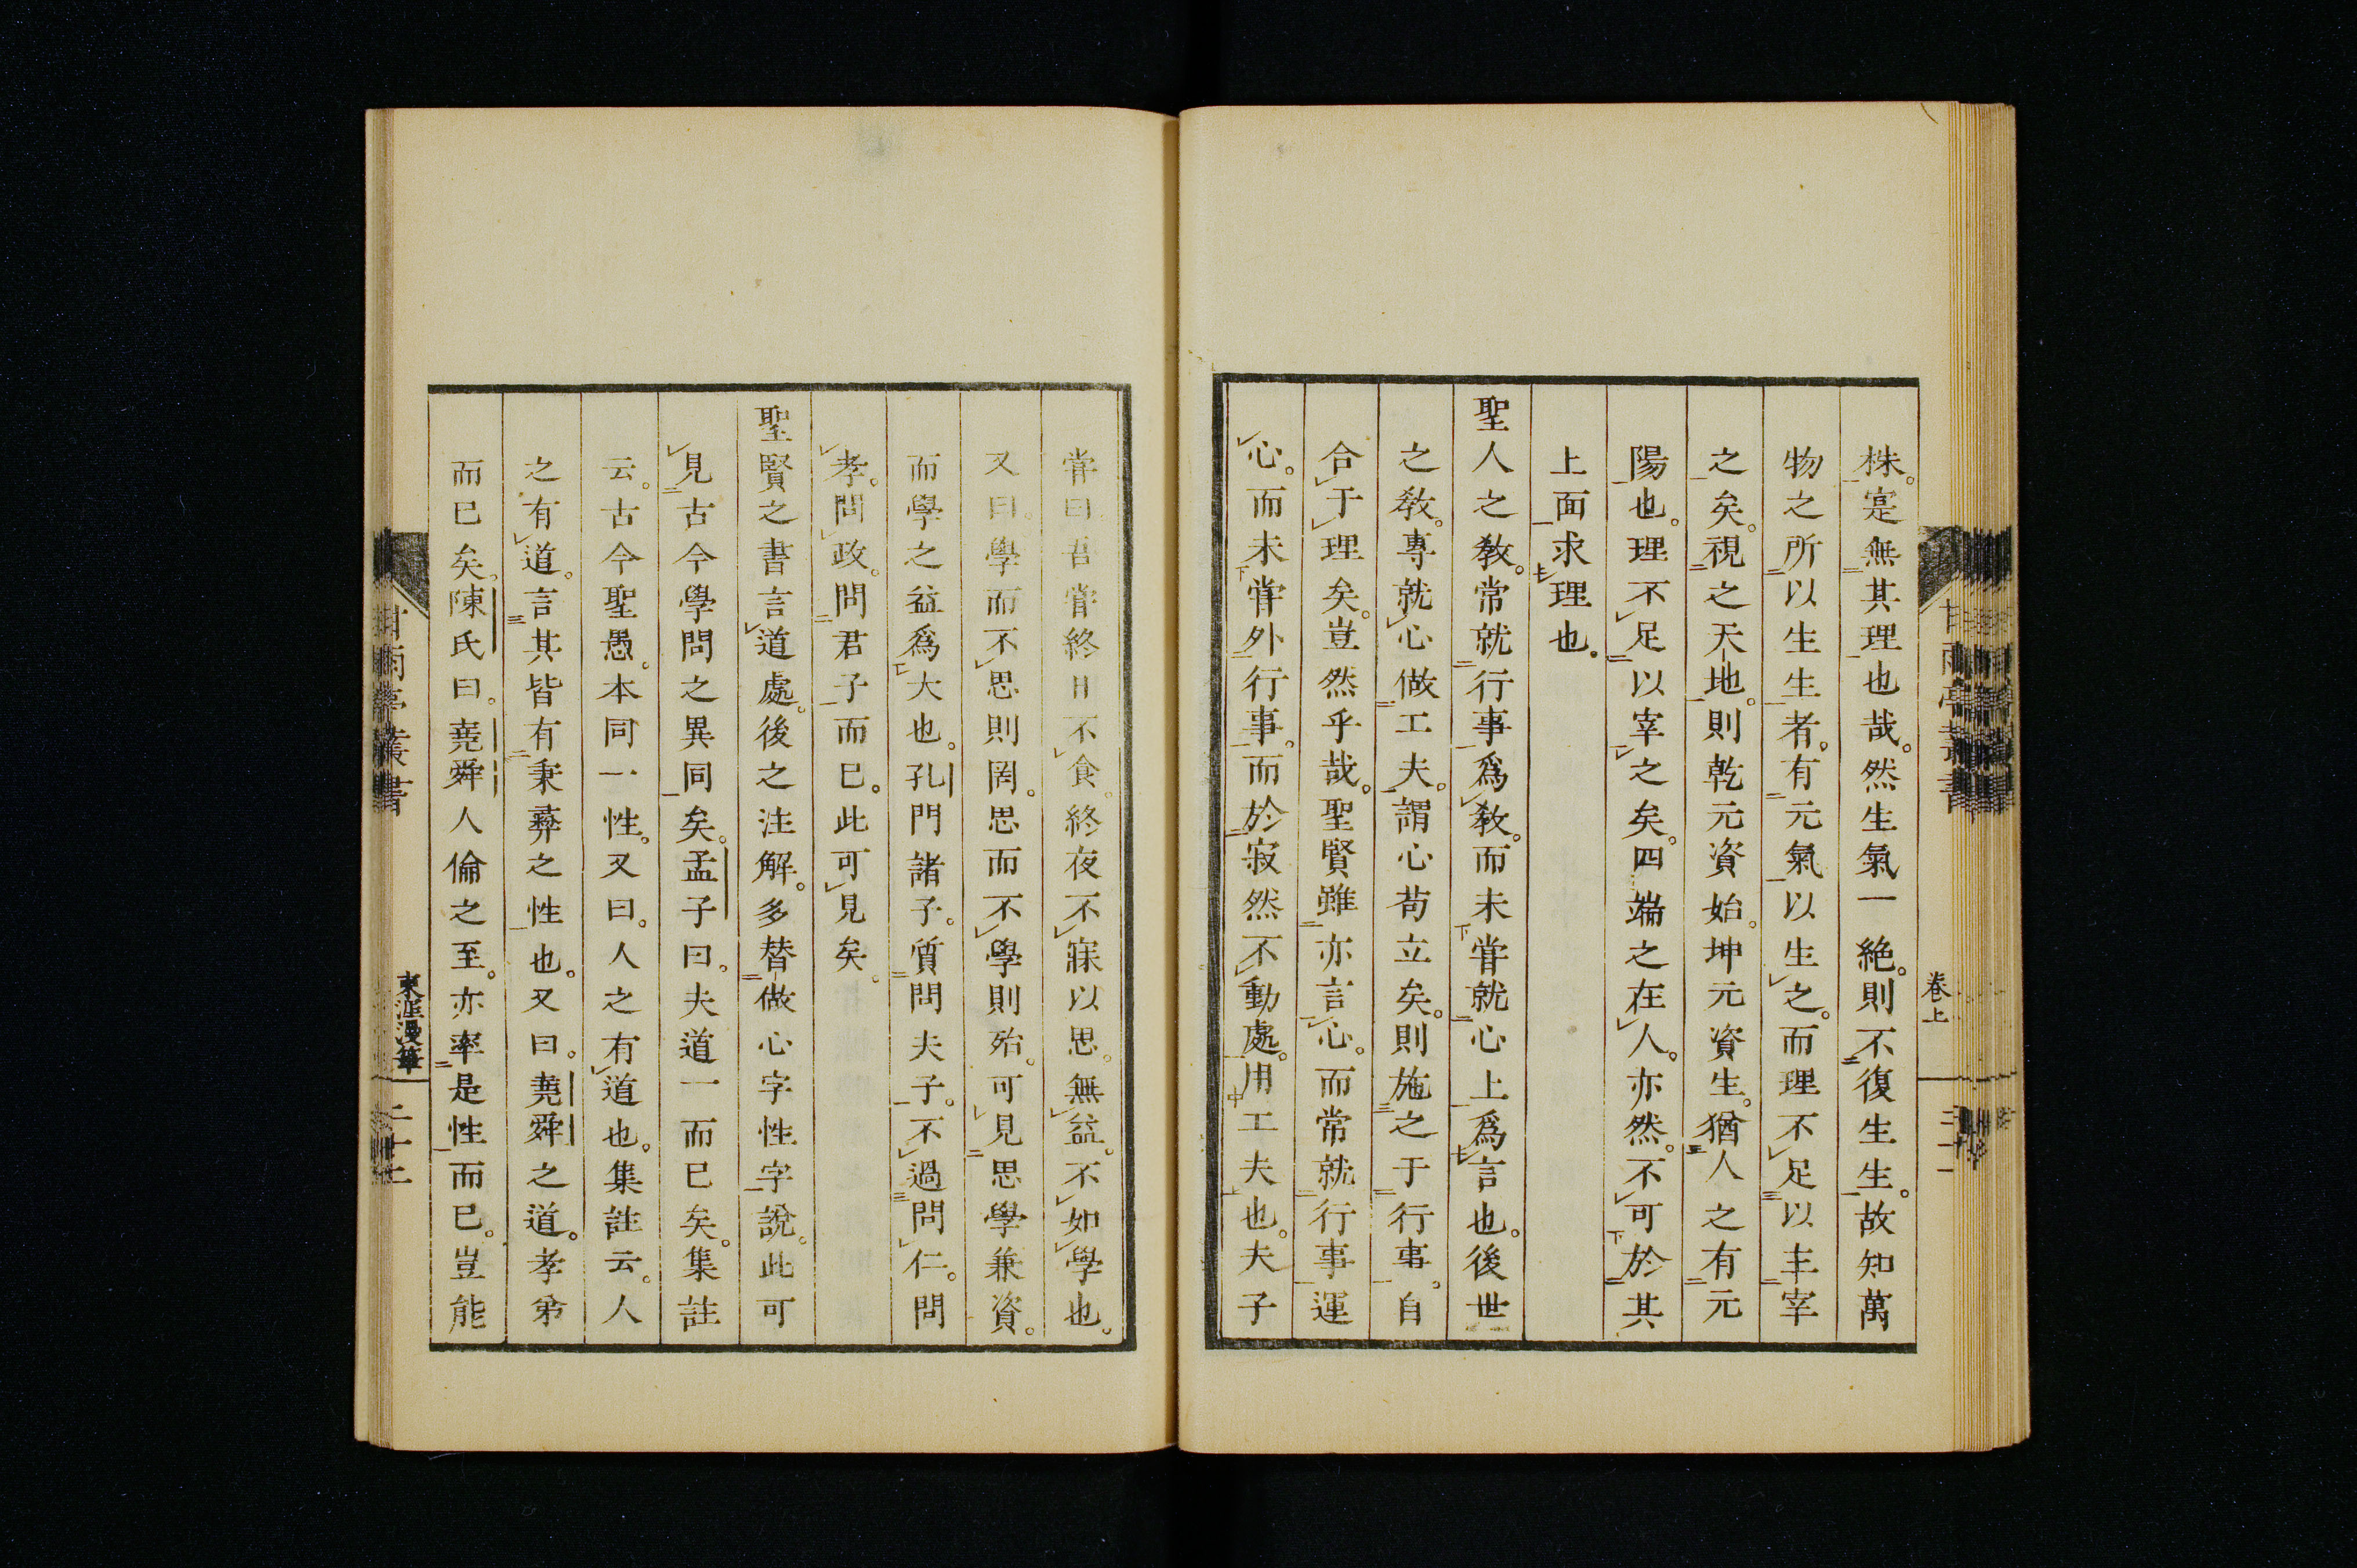 株。寔無其理也哉。然生氣一絶。則不復生生。故知萬
物之所以生生者。有元氣以生之。而理不足以主宰
之矣。視之天地。則乾元資始。坤元資生。猶人之有元
陽也。理不足以宰之矣。四端之在人。亦然。不可於其
上面求理也。
聖人之敎。常就行事爲敎。而未甞就心上爲言也。後世
之敎。專就心做工夫。謂心苟立矣。則施之于行事。自
合于理矣。豈然乎哉。聖賢雖亦言心。而常就行事運
心。而未甞外行事。而於寂然不動處。用工夫也。夫子
甞曰吾甞終日不食。終夜不寐以思。無益。不如學也。
又曰。學而不思則罔。思而不學則殆。可見思學兼資。
而學之益爲大也。孔門諸子。質問夫子。不過問仁。問
孝。問政。問君子而已。此可見矣。
聖賢之書言道處。後之注解。多替做心字性字說。此可
見古今學問之異同矣。孟子曰。夫道一而已矣。集註
云。古今聖愚。本同一性。又曰。人之有道也。集註云。人
之有道。言其皆有秉彝之性也。又曰。堯舜之道。孝弟
而已矣。陳氏曰。堯舜人倫之至。亦率是性而已。豈能
卷上
甘雨亭叢書
東涯漫筆